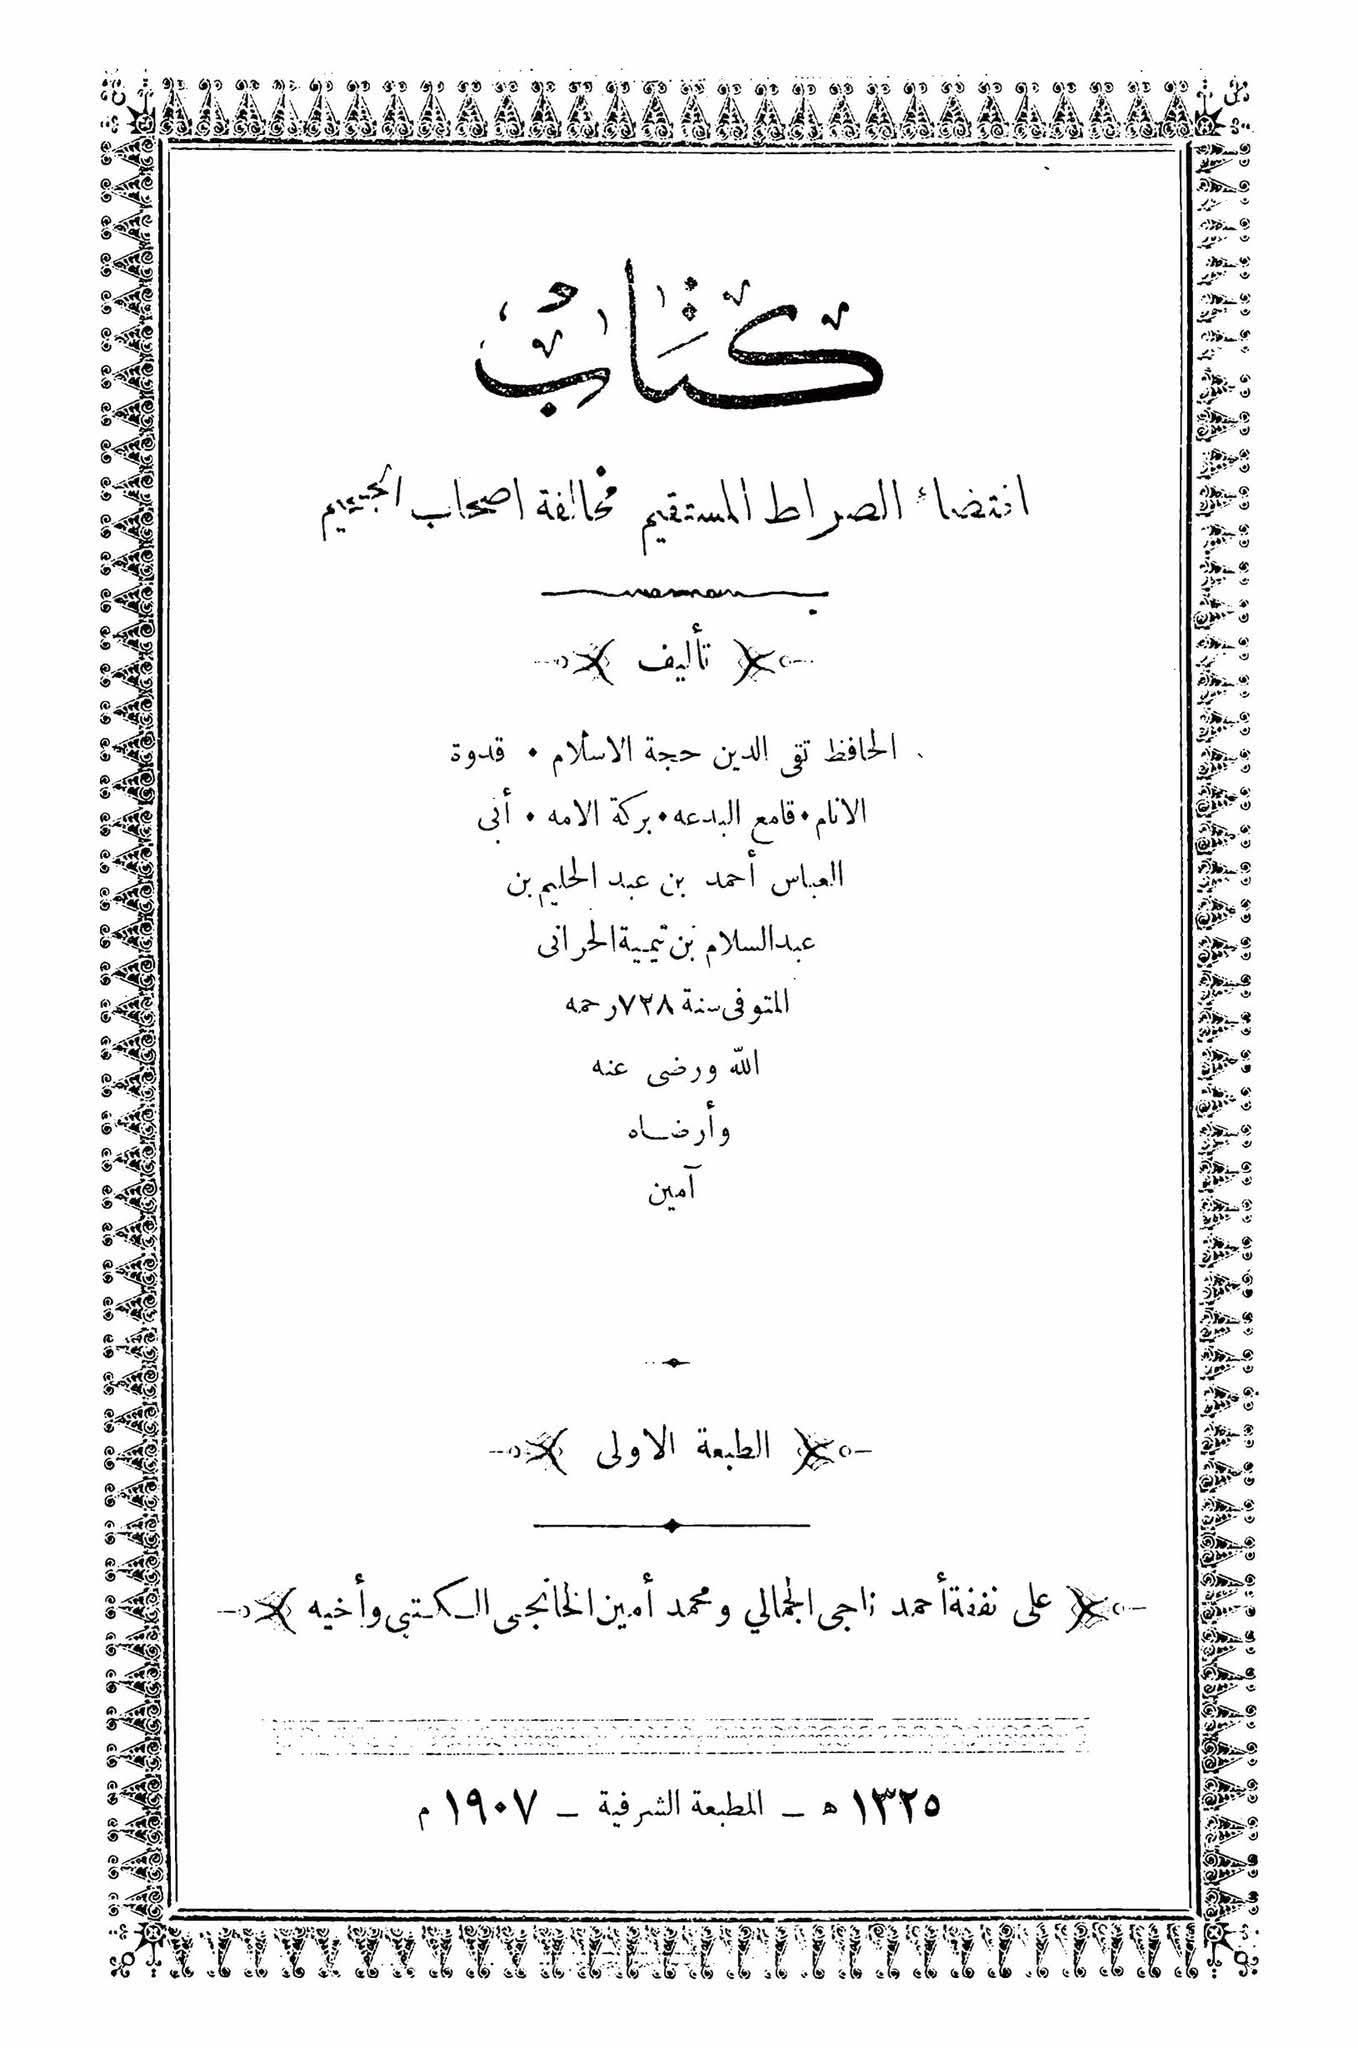 كتاب
اقتضاء الصراط المستقيم مخالفة اصحاب الجحيم
تأليف
الحافظ تقى الدين حجة الاسلام • قدوة
الانام • قامع البدعه • بركة الامه • أبى
العباس أحمد بن عبد الحليم بن
عبد السلام بن تيمية الحرانى
المتوفى سنة ٧٢٨ رحمه
الله ورضى عنه
وأرضاه
آمين
الطبعة الاولى
على نفقة أحمد ناجى الجمالي ومحمد أمين الخانجى الكتبى وأخيه
١٣٢٥ ه – المطبعة الشرفية – ١٩٠٧ م